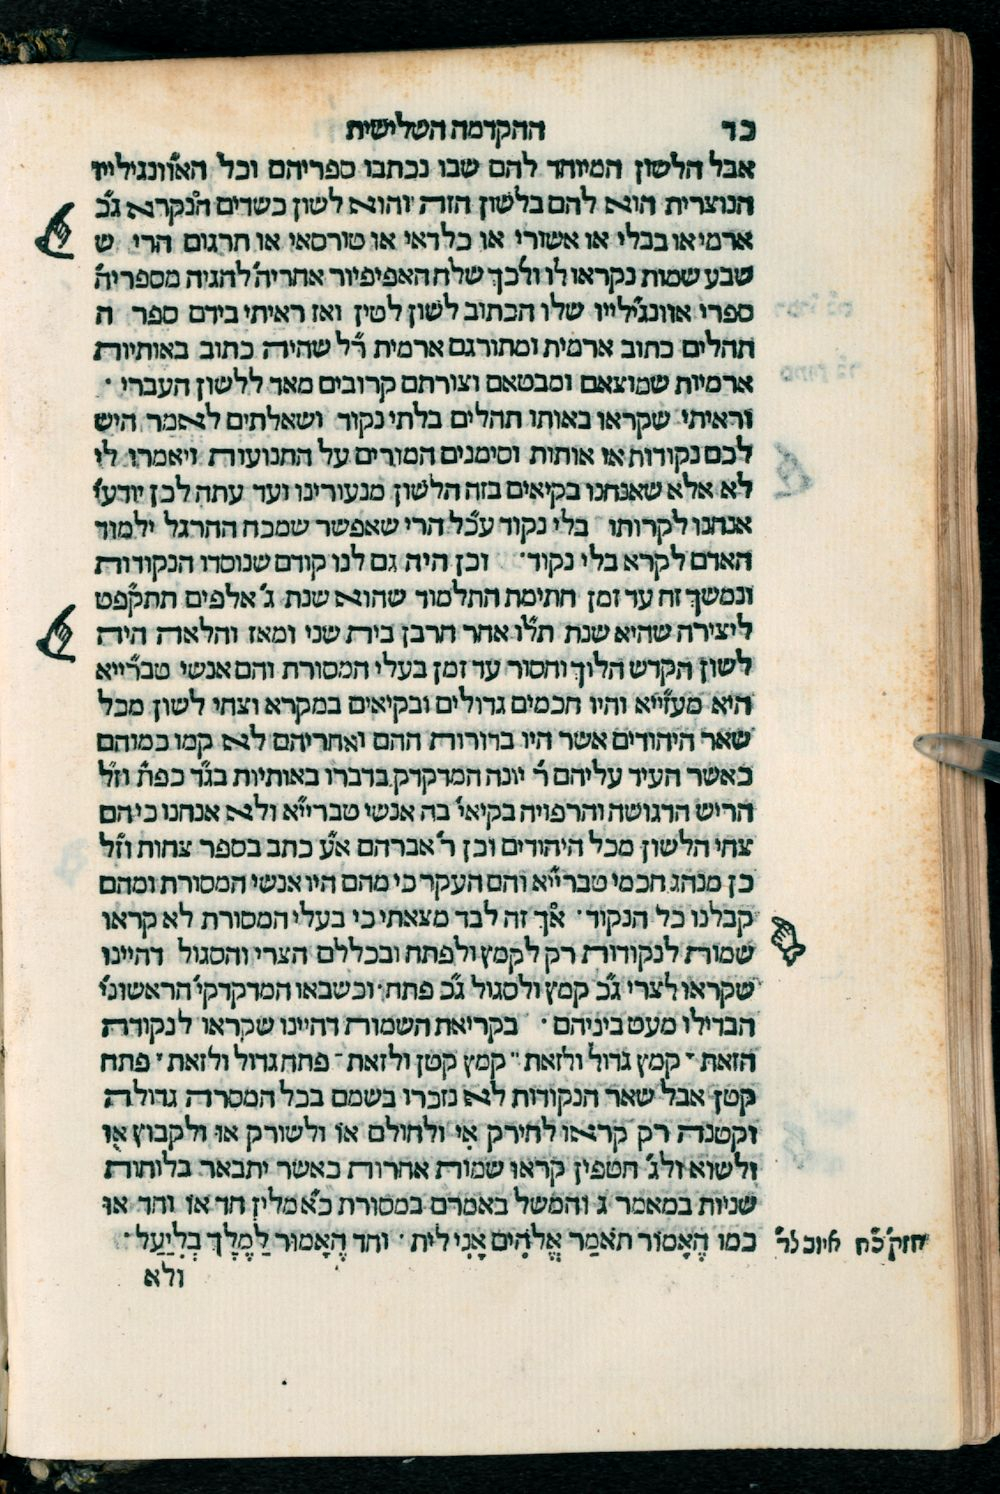 כד ההקדמה השלישית
אבל הלשון המיוחד להם שבו נכתבו ספריהם וכל האוונגילייו
הנוצרית הוא להם בלשון הזה והוא לשון כשדים הנקרא ג״כ
ארמי או בבלי או אשורי או כלדאי או טורסאי או תרגום הרי ש
שבע שמות נקראו לו ולכך שלח האפיפיור אחריה׳ להגיה מספריה׳
ספרי אוונגילייו שלו הכתוב לשון לטין ואז ראיתי בידם ספר ה
תהלים כתוב ארמית ומתורגם ארמית ר״ל שהיה כתוב באותיות
ארמיות שמוצאם ומבטאם וצורתם קרובים מאד ללשון העברי ·
וראיתי שקראו באותו תהלים בלתי נקוד ושאלתים לאמר היש
לכם נקודות או אותות וסימנים המורים על התנועות ויאמרו לי
לא אלא שאנחנו בקיאים בזה הלשון מנעורינו ועד עתה לכן יודעי׳
אנחנו לקרותו בלי נקוד ע״כל הרי שאפשר שמכח ההרגל ילמוד
האדם לקרא בלי נקוד · וכן היה גם לנו קודם שנוסדו הנקודות
ונמשך זה עד זמן חתימת התלמוד שהוא שנת ג׳ אלפים תתקפ״ט
ליצירה שהיא שנת תל״ו אחר חרבן בית שני ומאז והלאה היה
לשון הקדש הלוך וחסור עד זמן בעלי המסורת והם אנשי טברייא
היא מעזייא והיו חכמים גדולים ובקיאים במקרא וצחי לשון מכל
שאר היהודים אשר היו בדורות ההם ואחריהם לא קמו כמוהם
כאשר העיד עליהם ר׳ יונה המדקדק בדברו באותיות בג״ד כפ״ת וז״ל
הריש הדגושה והרפויה בקיאי׳ בה אנשי טברייא ולא אנחנו כי הם
צחי הלשון מכל היהודים וכן ר׳ אברהם א״ע כתב בספר צחות וז״ל
כן מנהג חכמי טברייא והם העקר כי מהם היו אנשי המסורת ומהם
קבלנו כל הנקוד · אך זה לבד מצאתי כי בעלי המסורת לא קראו
שמות לנקודות רק לקמץ ולפתח ובכללם הצרי והסגול דהיינו
שקראו לצרי ג״כ קמץ ולסגול ג״כ פתח · וכשבאו המדקדקי׳ הראשוני׳
הבדילו מעט ביניהם · בקריאת השמות דהיינו שקראו לנקודה
הזאת ָ קמץ גדול ולזאת ֵ קמץ קטן ולזאת ַ פתח גדול ולזאת ֶ פתח
קטן אבל שאר הנקודות לא נזכרו בשמם בכל המסרה גדולה
וקטנה רק קראו לחירק אִי ולחולם אוֹ ולשורק אוּ ולקבוץ אֻו
ולשוא ולג׳ חטפין קראו שמות אחרות כאשר יתבאר בלוחות
שניות במאמר ג והמשל באמרם במסורת כ״א מלין חד אוֹ וחד אוּ
כמו הֶאָמוֹר תֹאמַר אֱלֹהִים אָנִי לית · וחד הֶאָמוּר לַמֶלֶךְ בְלִיַעַל ·
חזק׳ כ״ח איוב ל״ד
ולא